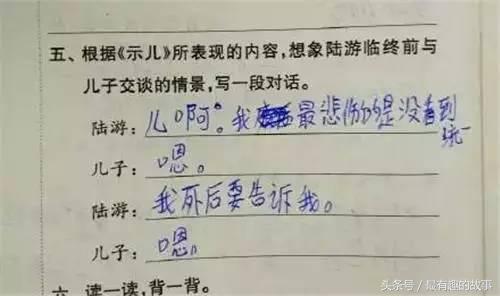 五、根据《示儿》所表现的内容,想象陆游临终前与
儿子交谈的情景,写一段对话。
陆游:儿啊。我最悲伤的是没看到
统一
儿子:嗯。
陆游:我死后要告诉我。
儿子:嗯。
六、读一读,背一背。
头条号/最有趣的故事